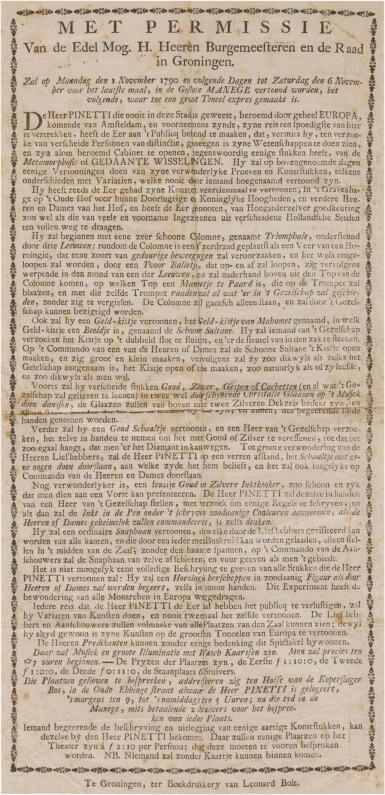 MET PERMISSIE
Van de Edel Mog. H. Heeren Burgemeesteren en de Raad
in Groningen.
Zal op Maandag den 1 November 1790 en volgende Dagen tot Zaturdag den 6 Novem-
ber voor het laatste maal, in de Geslote MANEGE vertoond worden, het
volgende, waar toe een groot Toneel expres gemaakt is.
De Heer PINETTI die nooit in deze Stad is geweest, beroemd door geheel EUROPA,
komende van Amsteldam, en voorneemens zynde, zyne reis ten spoedigste van hier
te vertrekken, heeft de Eer aan 't Publicq bekend te maaken, dat, vermits hy, ten verzoe-
ke van verscheide Persoonen van distinctie, genegen is zyne Wetenschappen te doen zien,
en zyn alom beroemd Cabinet te openen, tegenwoordig eenige stukken heeft, van de
Metamorphosis of GEDAANTE WISSELINGEN. Hy zal op bovengenoemde dagen
eenige Vertooningen doen van zyne verwonderlyke Proeven en Konststukken, telkens
onderscheiden met Variatien, welke nooit door iemand hoegenaamd vertoond zyn.
Hy heeft reeds de Eer gehad zyne Konsten veertienmaal te vertoonen, in 's Gravenha-
ge op 't Oude Hof voor hunne Doorlugtige en Koninglyke Hoogheden, en verdere Hee-
ren en Dames van het Hof, en heeft de Eer genoten, van Hoogstderzelver goedkeuring
zoo wel als die van veele en voorname Ingezetenen uit verscheidene Hollandsche Steden
ten vollen weg te draagen.
Hy zal beginnen met eene zeer schoone Colomne, genaamd Triomphale, ondersteund
door drie Leeuwen: rondom de Colomne is een verzierd
rologie, dat eene zoort van gedurige beweegingen zal veroorzaaken, en het welk onge-
werpende in den mond van een der Leeuwen,
Colomne komen, op welken Top een Mannetje te Paard is, die op de Trompet zal
blaazen, en met die zelfde Trompet
den, zonder zig te vergissen. De Colomne zal gansch alleen staan, en zal door 't Gezel-
schap kunnen bezigtigd worden.
Ook zal hy een Geld-kistje vertoonen, het Geld-kistje van Mahomet genaamd, in welk
Geld-kistje een Beeldje is, genaamd de Schoone Sultane. Hy zal iemand van 't Gezelschap
verzoeken het Kistje op 't dubbeld slot te sluiten, en 'er de sleutel van in den zak te steeken.
Op 't Commando van een van de Heeren of Dames zal de Schoone Sultane 't Kistje open
maaken, en zig groot en klein maaken, vervolgens zal zy zoo dikwyls als zulks het
Gezelschap aangenaam is, het Kistje open of toe maaken, zoo natuurlyk als of zy leefde,
en zoo dikwyls als men wil.
Voorts zal hy verscheide stukken Goud, Zilver, Gespen of Cachetten (en al wat 't Ge-
zelschap zal gelieven te leenen) in twee wel
doen dansen, de Glaazen zullen van boven met twee Zilveren Dekzels bedekt zyn, en
handen genoomen worden.
Verder zal hy een Goud Schaaltje vertoonen, en een Heer van 't Gezelschap verzoe-
ken, het zelve in handen te nemen om het met Goud of Zilver te vereffenen, tot dat het
zoo egaal hangt, dat men 'er het Diamant in kan weegen. Tot groote verwondering van de
Heeren Liefhebbers, zal de Heer PINETTI op een verren afstand, het Schaaltje met zy-
ne oogen doen doorslaan, aan welke zyde het hem belieft, en het zal ook insgelyks op
Commando van de Heeren en Dames doorslaan.
Nog verwonderlyker is, een fraaije Goud en Zilvere Inktkoker, zoo schoon en ryk
dat men dien aan een Vorst kan presenteeren. De Heer PINETTI zal dezelve in handen
van een Heer van 't Gezelschap stellen, met verzoek om eenige Regels te schryven, en
als dan zal de Inkt in de Pen onder 't schryven
Heeren of Dames geheimelyk zullen commandeeren, ja zelfs denken.
Hy zal een ordinaire Snaphaan vertoonen, dewelke door de Liefhebbers gevisiteerd kan
worden van alle kanten, en die door een ieder met
len In 't midden van de Zaal, zonder den haan te spannen, op 't Commando van de Aan-
schouwers zal de Snaphaan van zelve afschieten, en vuur geeven als men 't gebied.
Het is niet mogelyk eene volledige Beschryving te geeven van alle Stukken die de Heer
PINETTI vertoonen zal: Hy zal een Horologie herscheppen in zoodanig Figuur als door
Heeren of Dames zal worden begeert, zelfs in hunne handen. Dit Experiment heeft de
bewondering van alle Monarchen in Europa weggedragen.
Iedere reis dat de Heer PINETTI de Eer zal hebben het publiq te verlustigen, zal
hy Variatien van Kunsten doen, en nooit tweemaal het zelfde vertoonen. De Liefheb-
bers en Aanschouwers zullen volmaakt van alle Plaatzen van den Zaal kunnen zien; dewyl
hy altyd gewoon is zyne Kunsten op de grootste Toneelen van Europa te vertoonen.
De Heeren Predikanten kunnen zonder eenige bedenking dit Spectakel bywoonen.
Daar zal Musiek en groote Illuminatie met Wasch Kaarsen zyn. Men zal precies ten
7 uuren beginnen. — De Pryzen der Plaatzen zyn, de Eerste f 1:10:0, de Tweede
f 1:0:0, de Derde f 0:11:0, de Staanplaats 6 Stuivers.
Die Plaatzen gelieven te bespreeken, addresseeren zig ten Huise van de Koperslager
Bos, in de Oude Ebbinge straat alwaar de Heer PINETTI is gelogeert,
's morgens ten 9, tot 's namiddags ten 5 Uuren; na die tyd in de
Manege, mits betaalende 2 stuivers voor het bespree-
ken van ieder Plaats.
Iemand begeerende de beschryving en uitlegging van eenige aartige Konststukken, kan
dezelve by den Heer PINETTI bekomen. Daar zullen eenige Plaatzen op het
Theater zyn à f 2:10 per Persoon; dog deze moeten te vooren besproken
worden. NB. Niemand zal zonder Kaartje kunnen binnen komen.
Te Groningen, ter Boekdrukkery van Leonard Bolt.